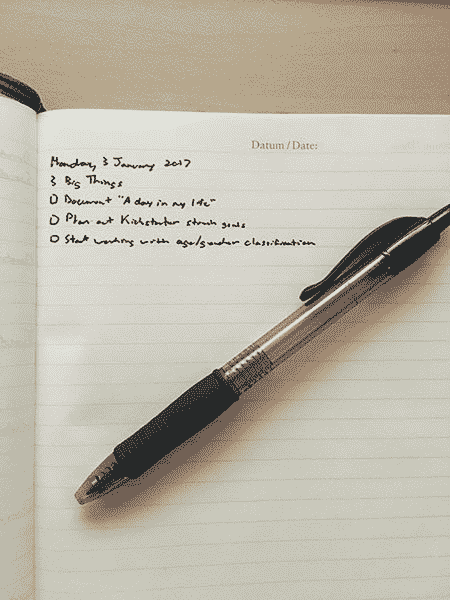 Datum / Date:
Monday, 3 January 2017
3 Big Things
□ Document "A day in my life"
□ Plan out Kickstarter stretch goals
□ Start working with age/gender classification